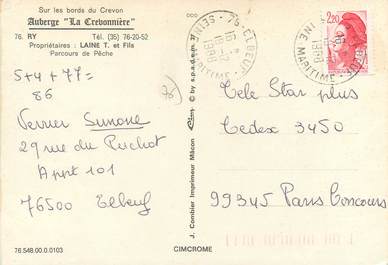 Sur les bords du Crevon
Auberge "La Crevonnière"
76. RY Tél. (35) 76-20-52
Propriétaires : LAINE T. et Fils
Parcours de Pêche
5+4+77=
86
Verrier Simone
29 rue du Puchot
Appt 101
76500 Elbeuf
76.548.00.0.0103
CIMCROME
J. Combier Imprimeur Mâcon
Cim
© by s.p.a.d.e.m
76-ELBEUF
SEINE MARITIME
1988
2,20
Tele Star plus
Cedex 3450
99345 Paris Concours